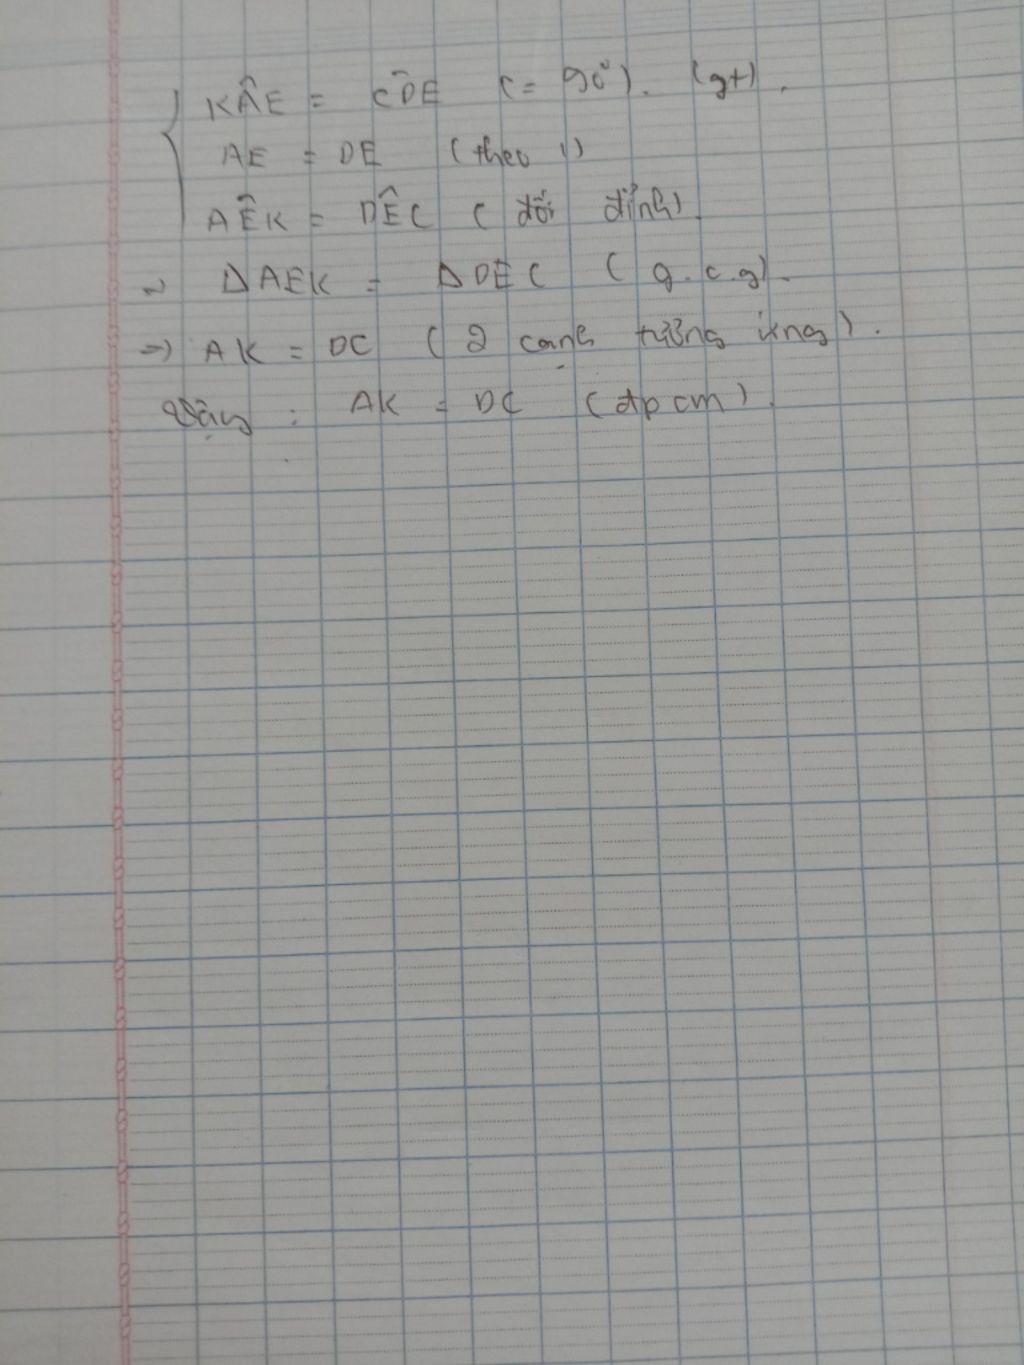 { KÂE = CD̂E (= 90°). (gt).
AE = DE (theo 1)
AÊK = DÊC (đối đỉnh)
~ ΔAEK = ΔDEC (g.c.g).
=> AK = DC (2 cạnh tương ứng).
Vậy : AK = DC (đpcm).